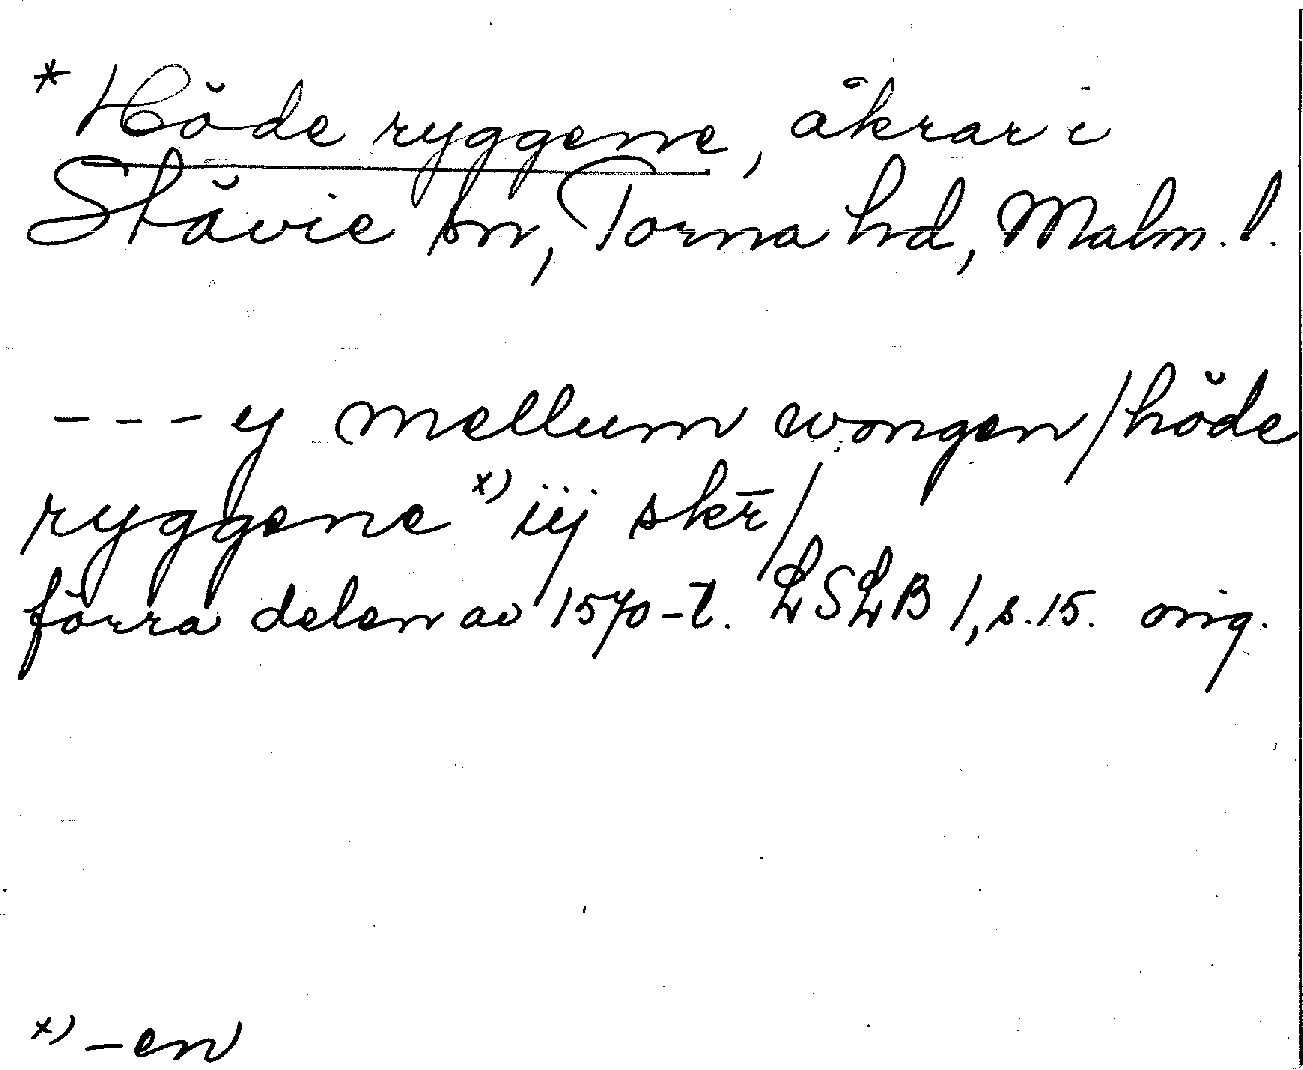 * Höde ryggene, åkrar i
Stävie sn, Torna hd, Malm. l.
--- ej mellum wongen/höde
ryggene x) iij skr̄/
förra delen av 1570-t. LSLB 1, s.15. orig.
x) -en